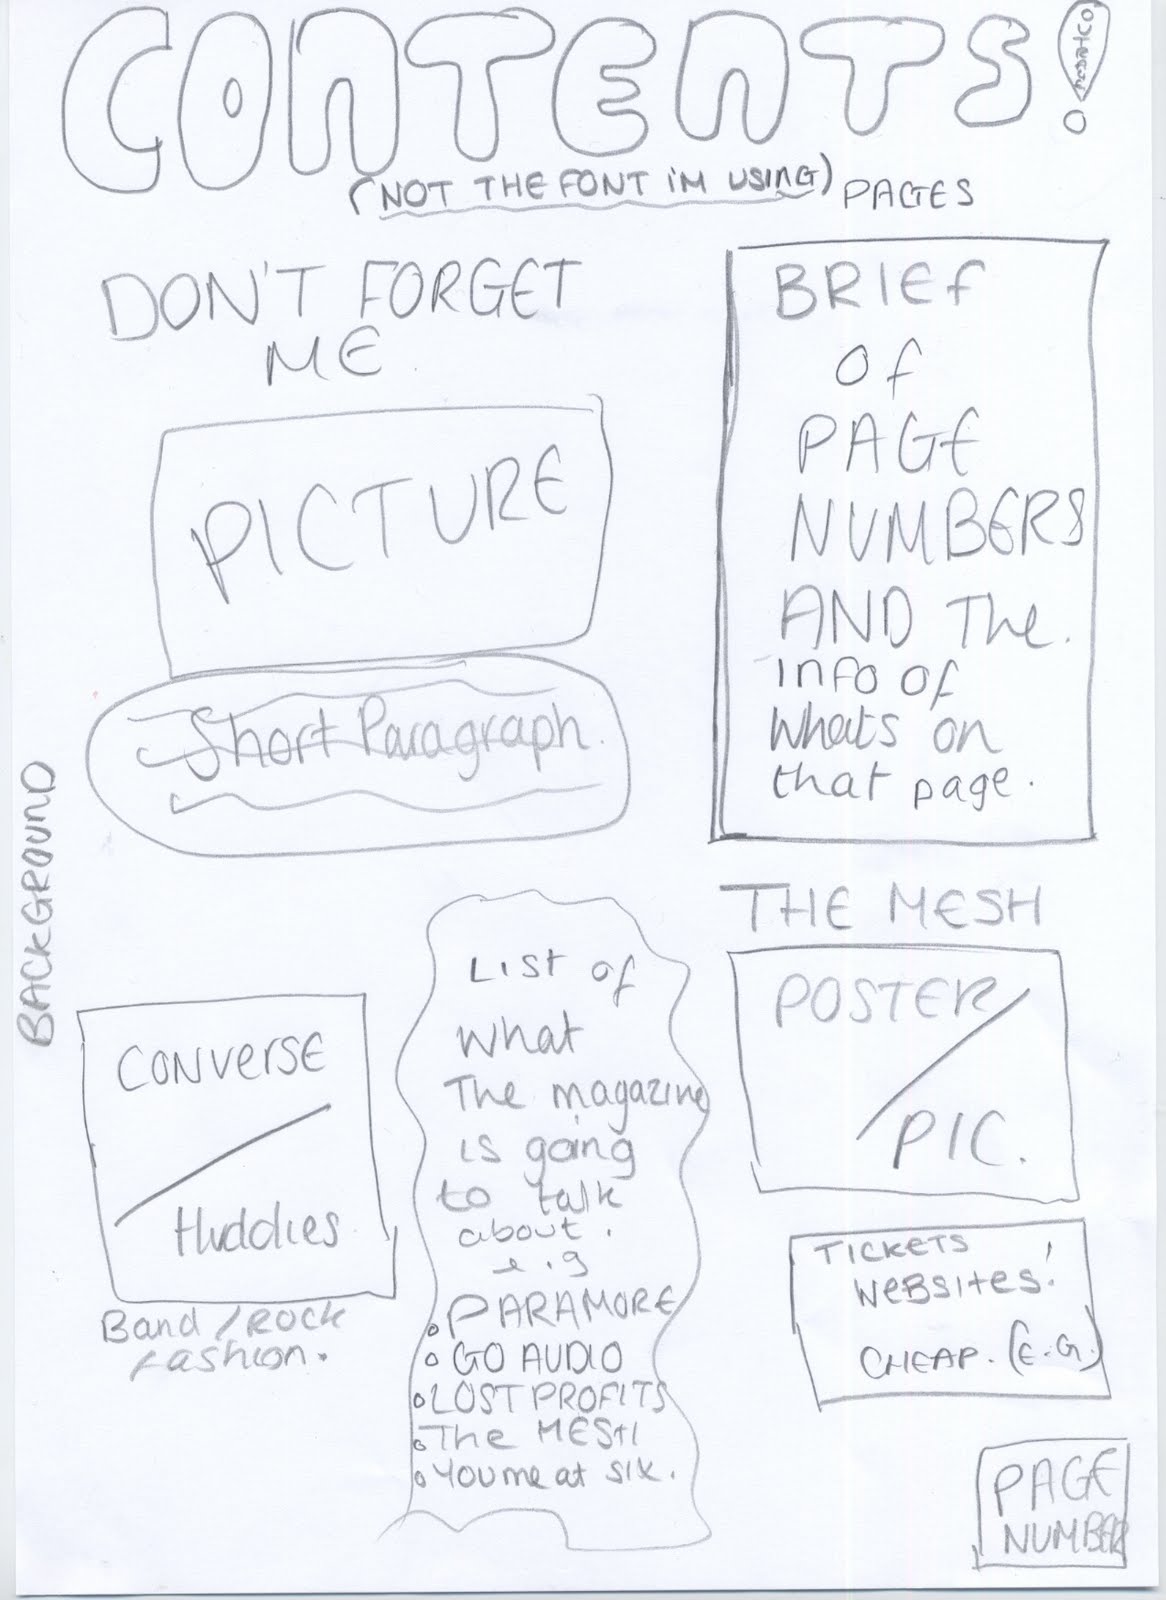 CONTENTS!
(NOT THE FONT i'M USING) PAGES
DON'T FORGET
ME
PICTURE
Short Paragraph.
BRIEf
Of
PAGE
NUMBERS
AND The.
info of
whats on
that page.
BACKGROUND
THE MESH
POSTER/
PIC.
CONVerSE
/
Huddies
Band/Rock
fashion.
LIST of
what
The magazine
is going
to talk
about.
e.g
PARAMORE
GO AUDIO
LOST PROFITS
The MESH
You me at six.
TICKETS
WeBSiteS!
CHEAP. (E.G.)
PAGE
NUMBER